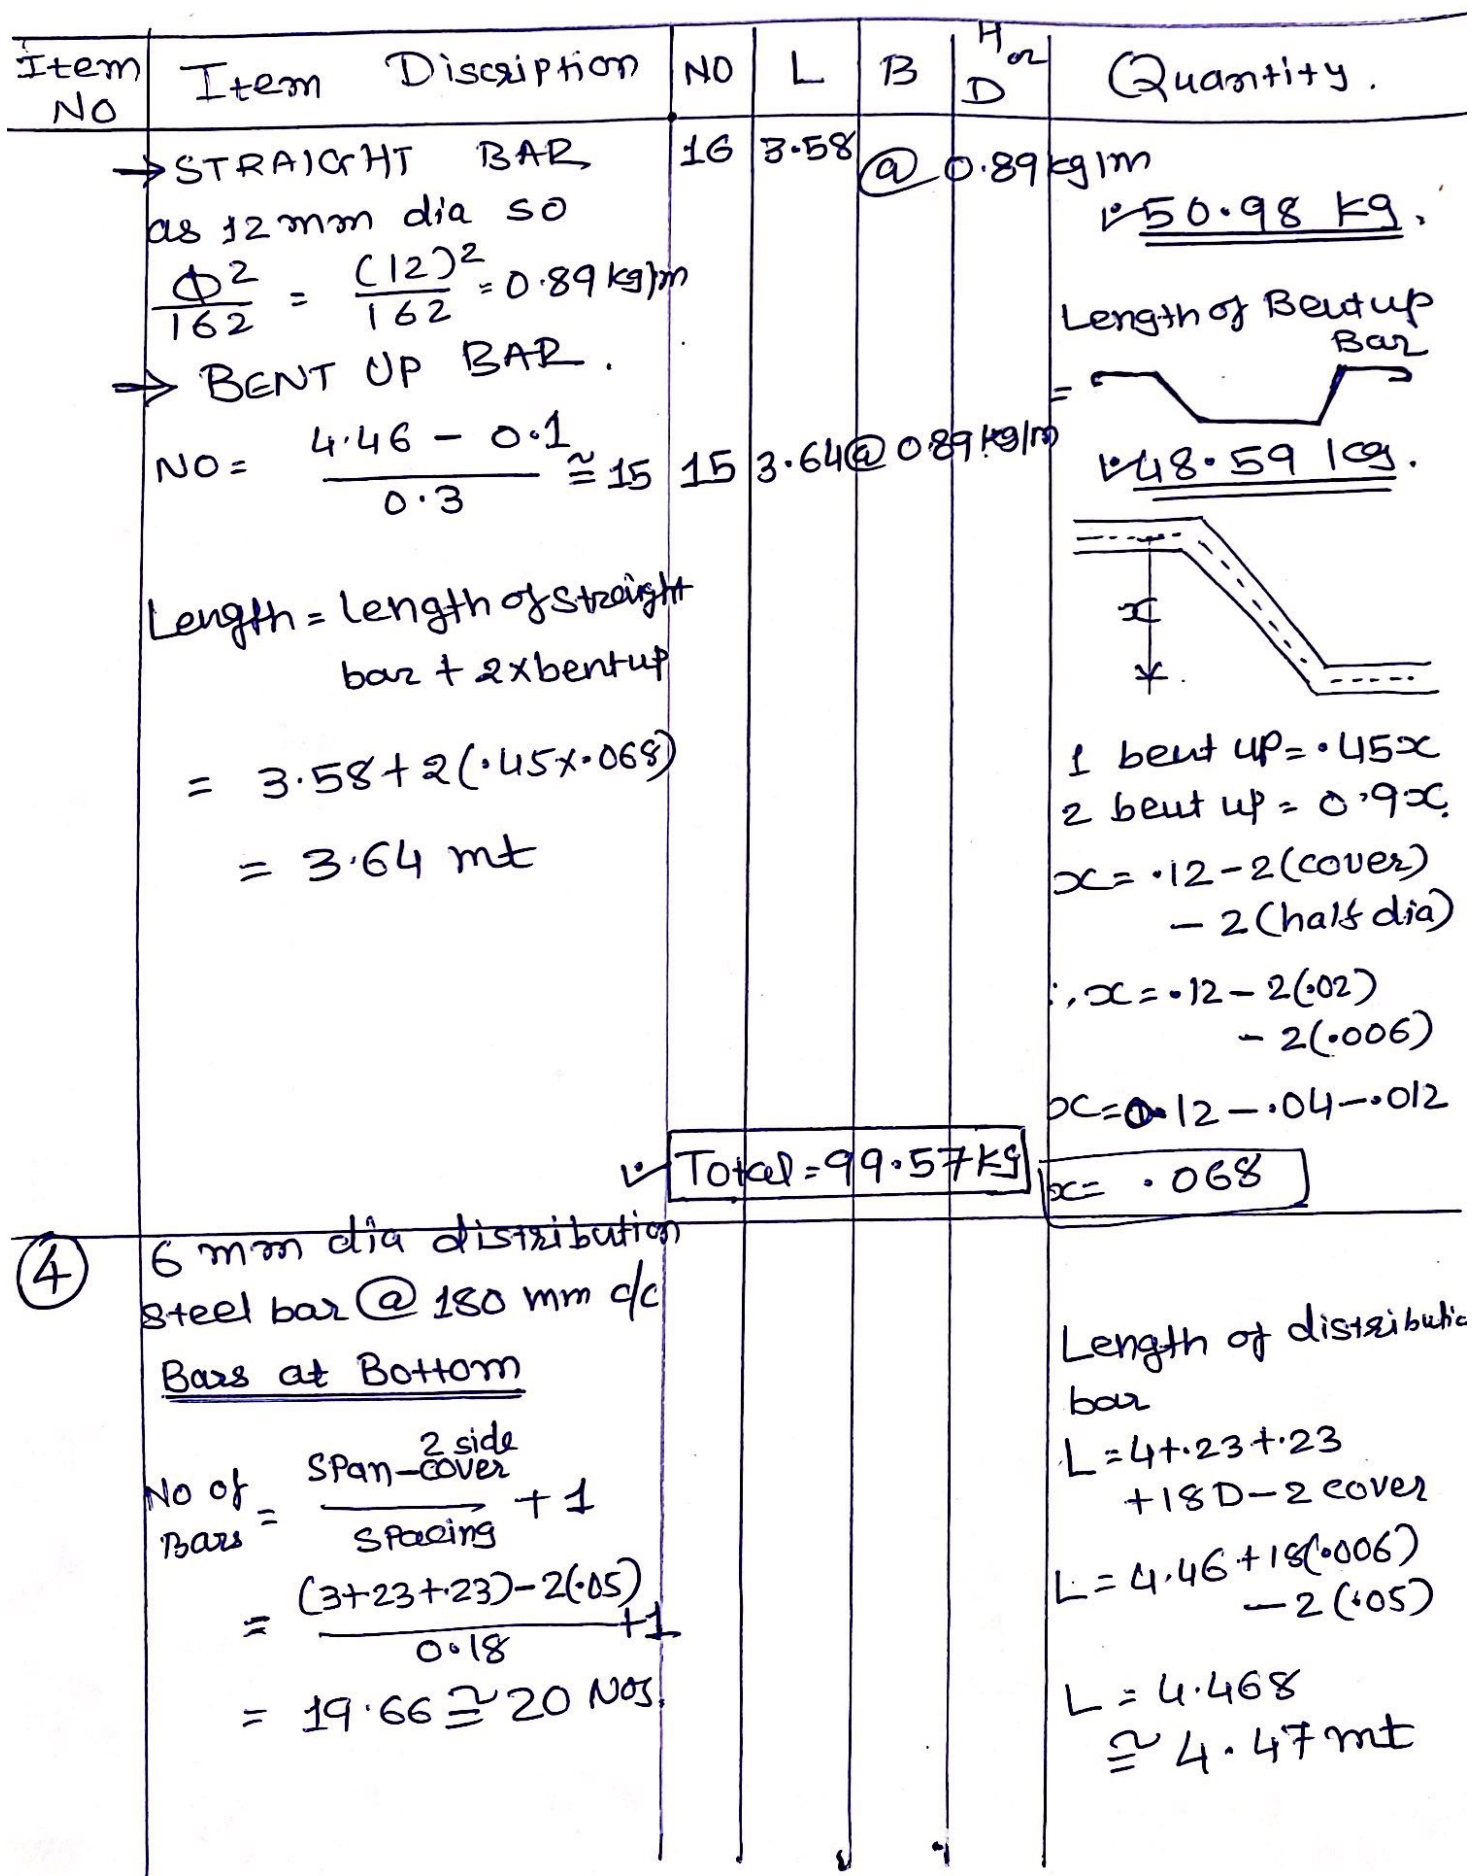 Item NO | Item Discription | NO | L | B | H or D | Quantity.
→ STRAIGHT BAR | 16 | 3.58 | @ 0.89 kg/m
as 12 mm dia so
50.98 kg.
Φ²/162 = (12)²/162 = 0.89 kg/m
→ BENT UP BAR.
NO = (4.46 - 0.1)/0.3 ≅ 15 | 15 | 3.64 @ 0.89 kg/m
Length = length of straight
bar + 2×bentup
= 3.58 + 2(.45×.068)
= 3.64 mt
Length of Bentup
Bar
=
48.59 kg.
x
1 bent up = .45x
2 bent up = 0.9x.
x = .12 - 2(cover)
- 2(half dia)
∴ x = .12 - 2(.02)
- 2(.006)
x = 0.12 - .04 - .012
x = .068
Total = 99.57 kg
④ 6 mm dia distribution
steel bar @ 180 mm c/c
Bars at Bottom
No of Bars = (Span - 2 side cover)/Spacing + 1
= ((3+23+.23) - 2(.05))/0.18 + 1
= 19.66 ≅ 20 Nos.
Length of distributio
bar
L = 4+.23+.23
+18D - 2 cover
L = 4.46 + 18(.006)
- 2(.05)
L = 4.468
≅ 4.47 mt